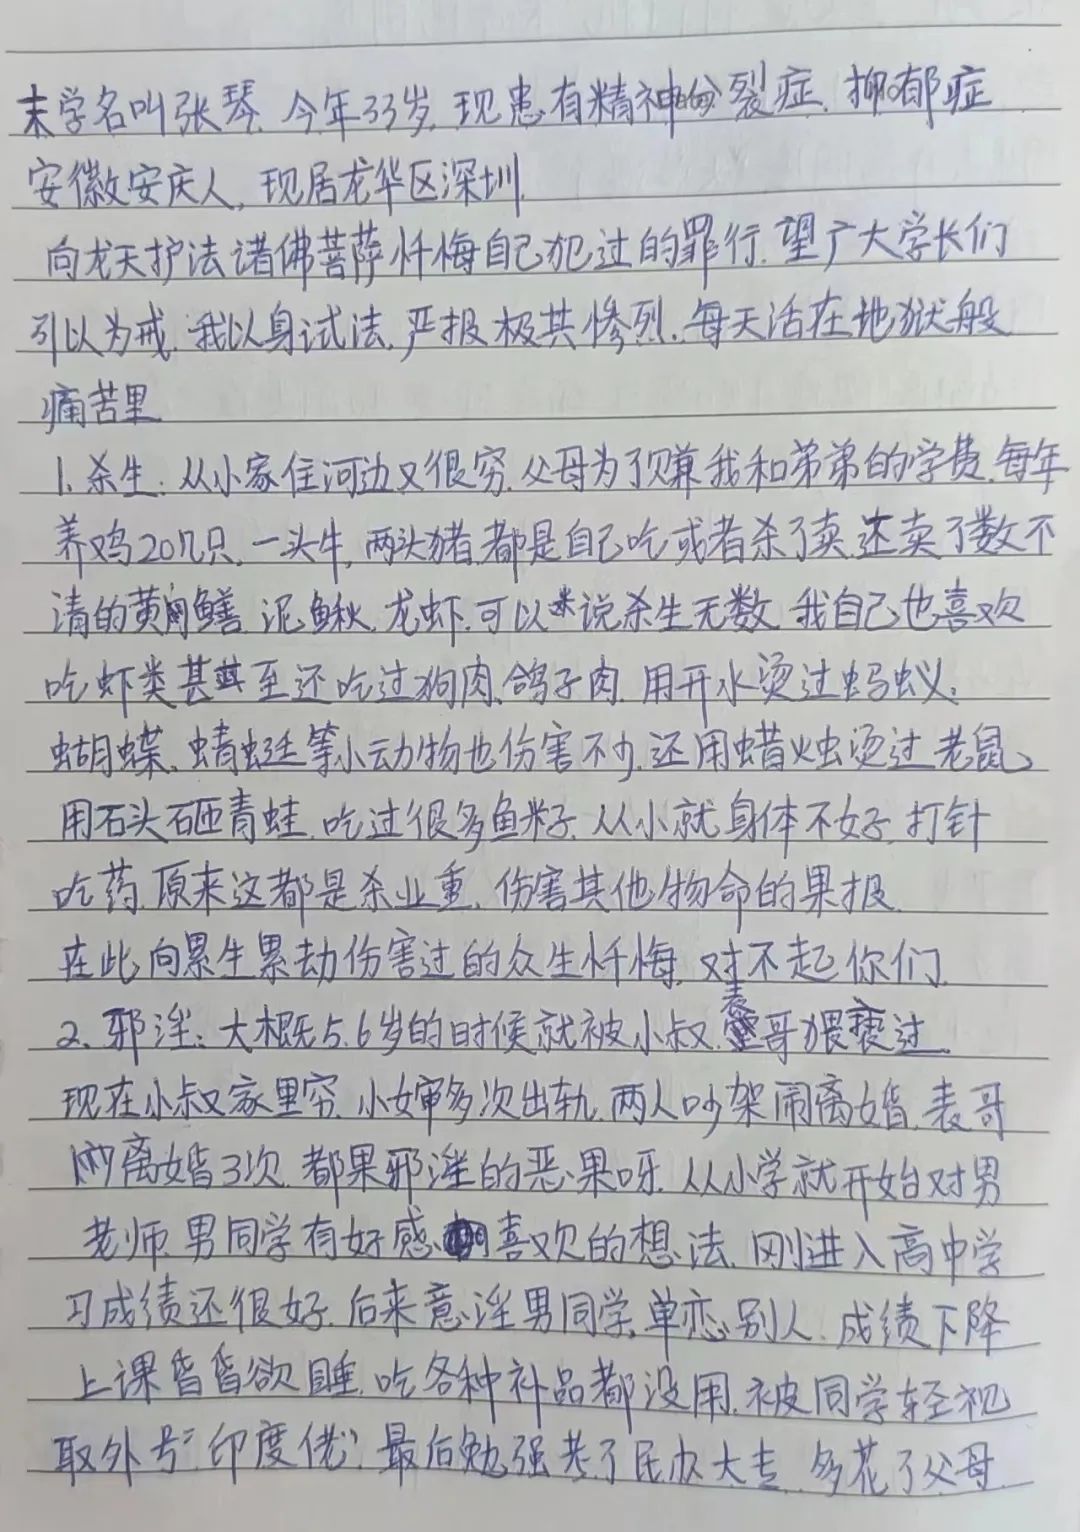 末学名叫张琴.今年33岁.现患有精神分裂症.抑郁症
安徽安庆人,现居龙华区深圳.
向龙天护法诸佛菩萨忏悔自己犯过的罪行.望广大学长们
引以为戒.我以身试法.严报极其惨烈.每天活在地狱般
痛苦里.
1.杀生:从小家住河边又很穷.父母为了赚我和弟弟的学费.每年
养鸡20几只,一头牛,两头猪.都是自己吃或者杀了卖.还卖了数不
清的黄鳝.泥鳅.龙虾.可以说杀生无数.我自己也喜欢
吃虾类甚至还吃过狗肉、鸽子肉.用开水烫过蚂蚁、
蝴蝶、蜻蜓等小动物也伤害不少.还用蜡烛烫过老鼠、
用石头砸青蛙.吃过很多鱼籽.从小就身体不好.打针
吃药.原来这都是杀业重.伤害其他物命的果报.
在此向累生累劫伤害过的众生忏悔.对不起你们.
2、邪淫:大概5.6岁的时候就被小叔.表哥猥亵过.
现在小叔家里穷.小婶多次出轨.两人吵架闹离婚.表哥
离婚3次.都果邪淫的恶果呀.从小学就开始对男
老师.男同学有好感喜欢的想法.刚进入高中学
习成绩还很好.后来意淫男同学.单恋别人.成绩下降
上课昏昏欲睡.吃各种补品都没用.被同学轻视
取外号"印度佬".最后勉强考了民办大专.多花了父母